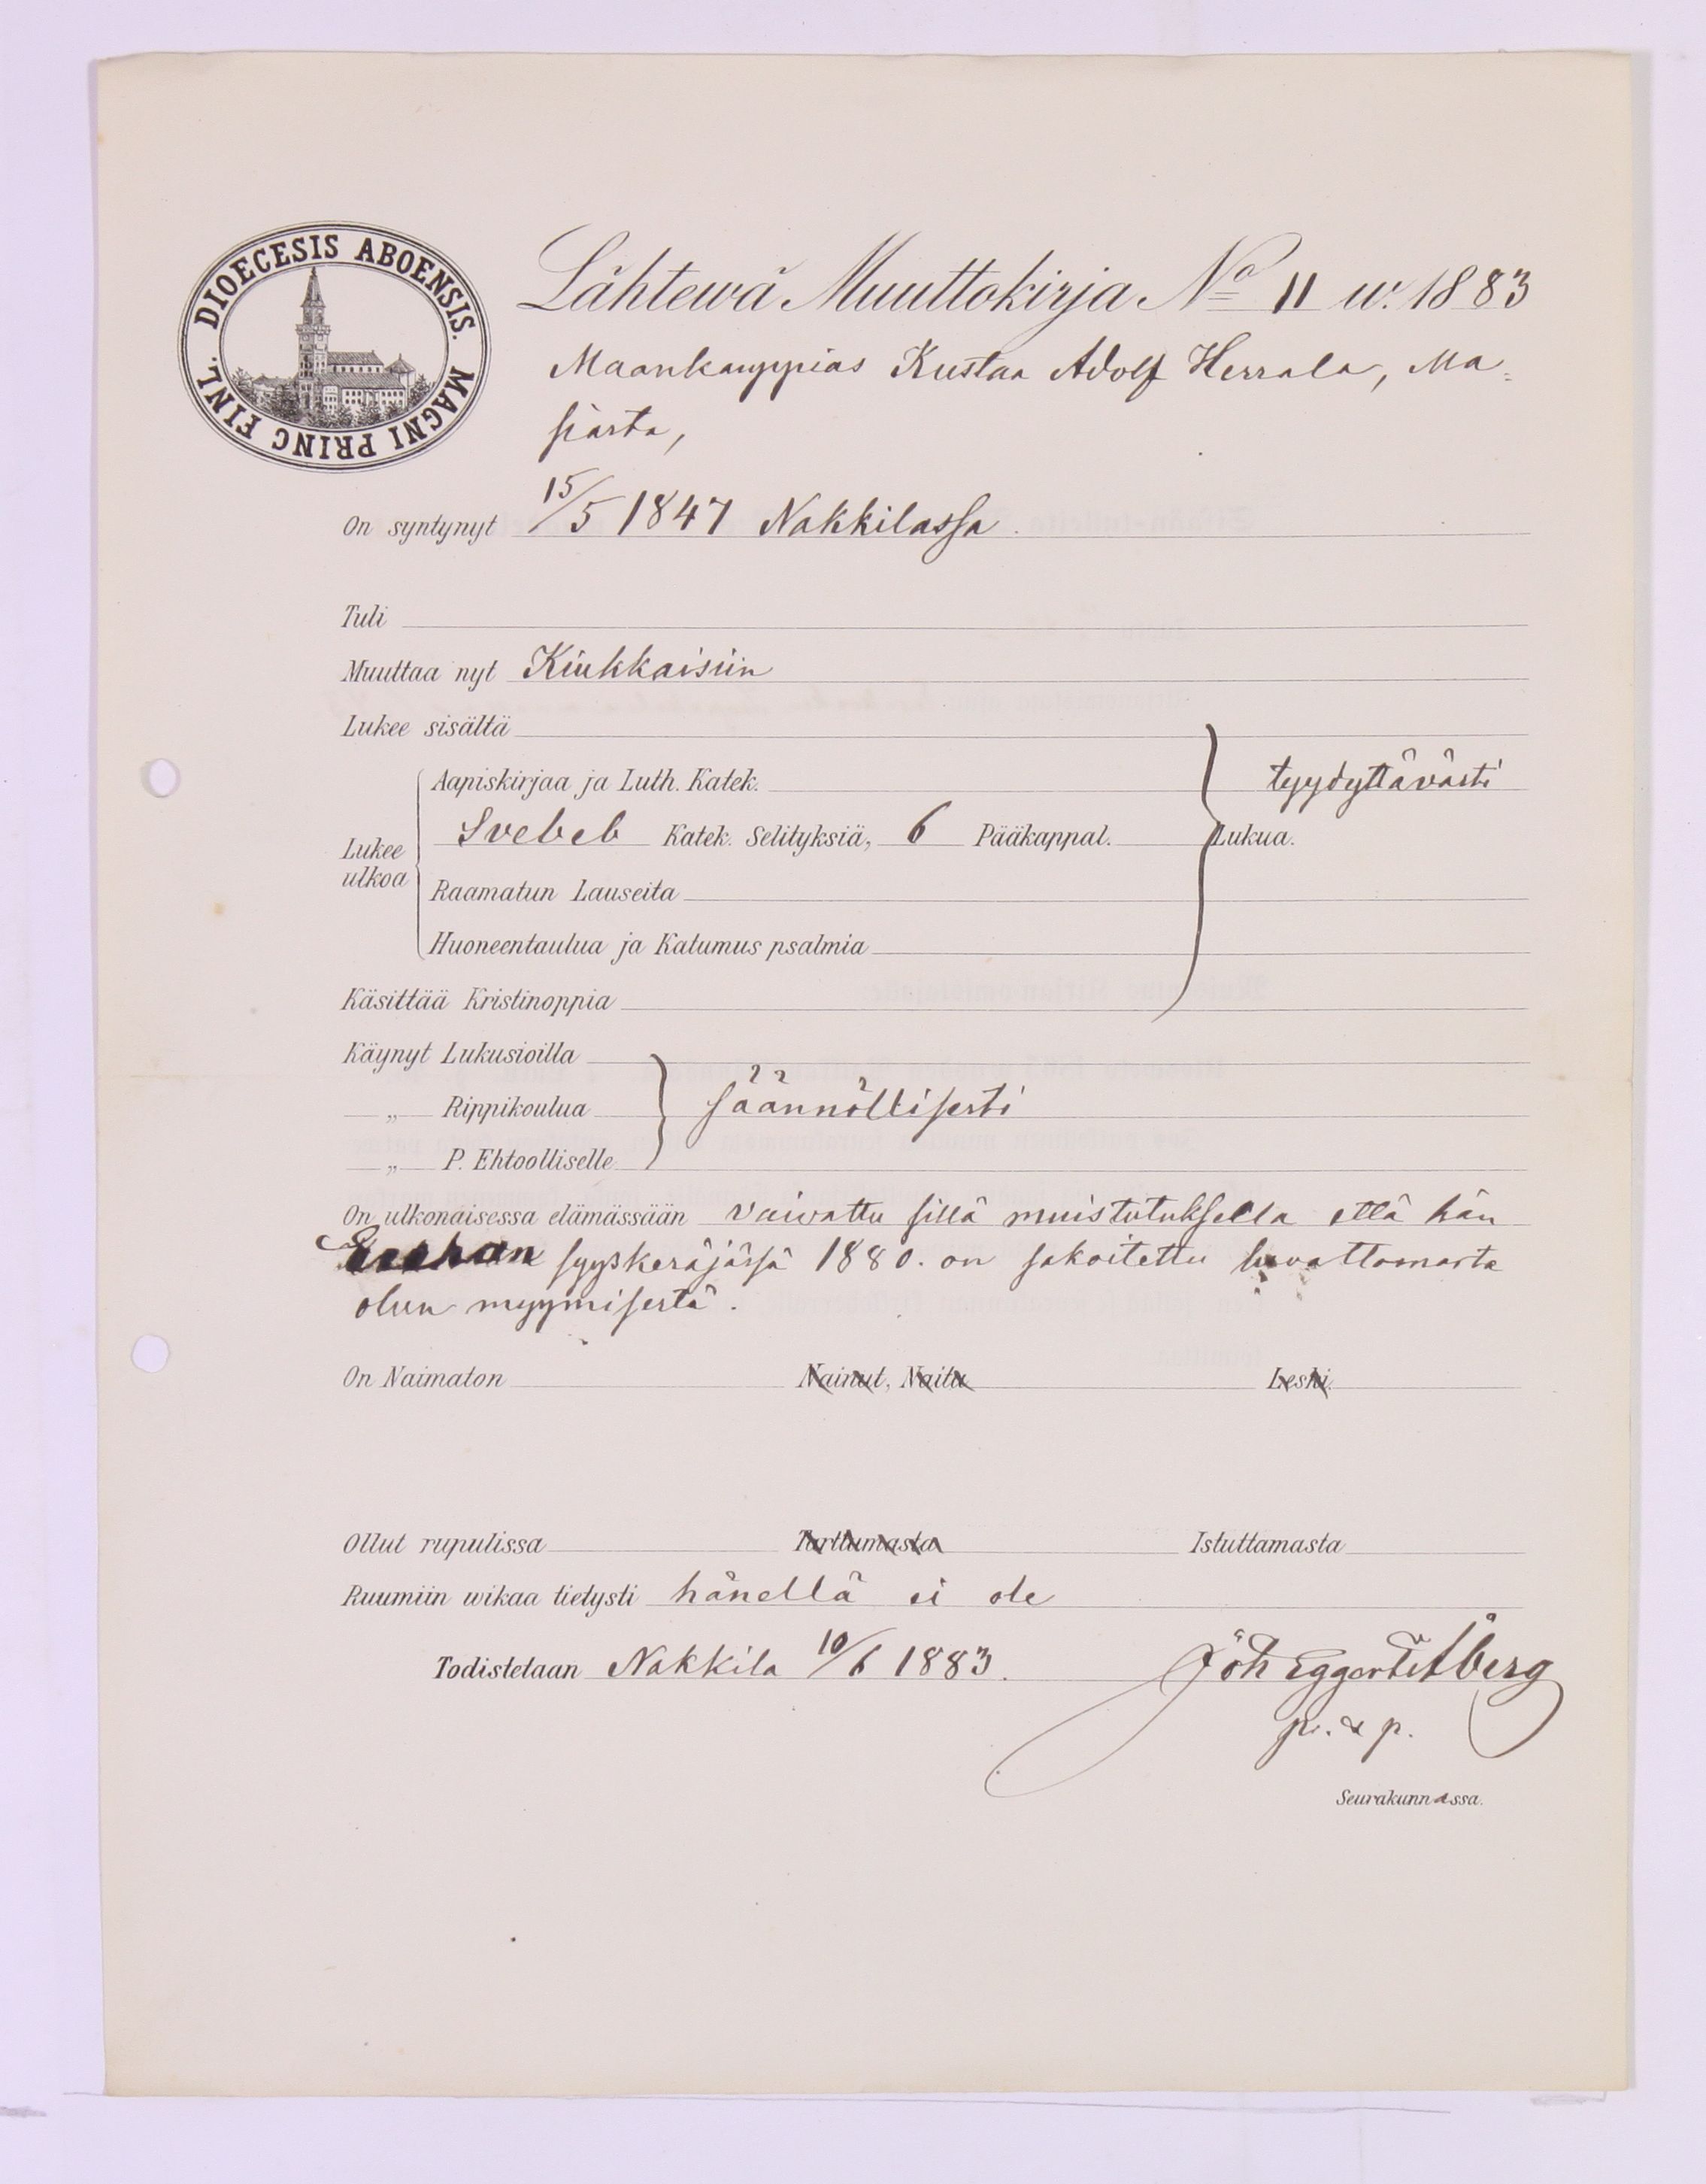 DIOECESIS ABOENSIS. MAGNI PRINC FINL.
Lähtewä Muuttokirja No 11 w. 1883
Maankauppias Kustaa Adolf Herrala, Ma=
siasta,
On syntynyt 15/5 1847 Nakkilassa.
Tuli
Muuttaa nyt Kiukkaisiin
Lukee sisältä
Aapiskirjaa ja Luth. Katek. tyydyttävästi
Lukee ulkoa
Svebeb Katek. Selityksiä, 6 Pääkappal. Lukua.
Raamatun Lauseita
Huoneentaulua ja Katumus psalmia
Käsittää Kristinoppia
Käynyt Lukusioilla
„ Rippikoulua säännöllisesti
„ P. Ehtoolliselle
On ulkonaisessa elämässään vaivattu sillä muistutuksella että hän
syyskeräjässä 1880. on sakoitettu luvattomasta
olun myymisestä.
On Naimaton Nainut, Naitu Leski.
Ollut rupulissa Tarttumasta Istuttamasta
Ruumiin wikaa tietysti hänellä ei ole
Todistetaan Nakkila 10/6 1883. Joh Eggert Åberg
p.
Seurakunnassa.